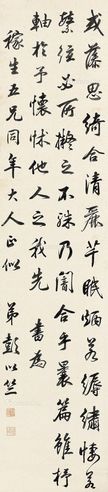 或藻思綺合清麗芊眠炳若縟繡悽若
繁絃必所擬之不殊乃闇合乎曩篇雖杼
軸於予懷怵他人之我先 書為
稼生五兄同年大人正似 弟彭以竺